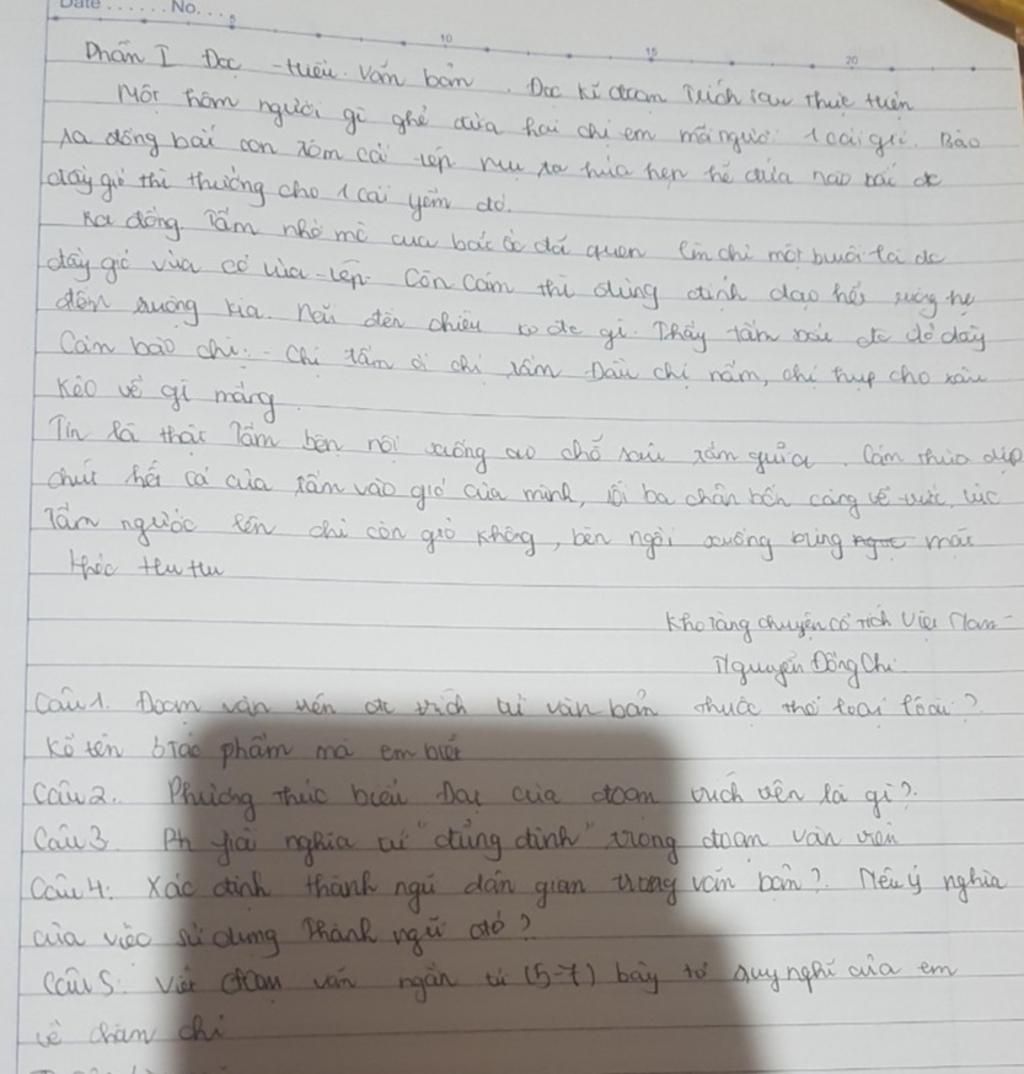 Date ...... No. ...
5 10 15 20
Phần I Đọc - hiểu văn bản. Đọc kĩ đoạn trích sau thực hiện
Một hôm người gì ghẻ đưa hai chị em mỗi người 1 cái giỏ. Bảo
ra đồng bắt con tôm cái tép mụ ta hứa hẹn hễ đứa nào bắt đc
đầy giỏ thì thưởng cho 1 cái yếm đỏ.
Ra đồng Tấm nhờ mò cua bắt ốc đã quen lên chỉ một buổi là đc
đầy giỏ vừa cá vừa tép. Còn Cám thì dủng đỉnh dạo hết ruộng nọ
đến ruộng kia. Mãi đến chiều ko đc gì. Thấy Tấm bắt đc đỏ đầy
Cám bảo chị: - Chị Tấm ơi chị Tấm Đầu chị nấm, chị hụp cho sâu
Kẻo về gì mắng
Tin là thật Tấm bèn nội xuống ao chỗ sâu tắm rửa. Cám thừa dịp
chút hết cá của Tấm vào giỏ của mình, rồi ba chân bốn cẳng về trước, lúc
Tấm ngước lên chỉ còn giỏ không, bèn ngồi xuống bưng mặt
khóc hu hu
Kho tàng chuyện cổ tích Việt Nam -
Nguyễn Đổng Chi
Câu 1. Đoạn văn trên đc trích từ văn bản thuộc thể loại loại?
Kể tên 3 tác phẩm mà em biết
Câu 2. Phương thức biểu Đạt của đoạn trích trên là gì?
Câu 3 Ph giải nghĩa từ "dủng đỉnh" trong đoạn văn trên
Câu 4. Xác định thành ngữ dân gian trong văn bản? Nêu ý nghĩa
của việc sử dụng Thành ngữ đó?
Câu 5: Viết đoạn văn ngắn từ (5-7) bày tỏ suy nghĩ của em
về chăm chỉ